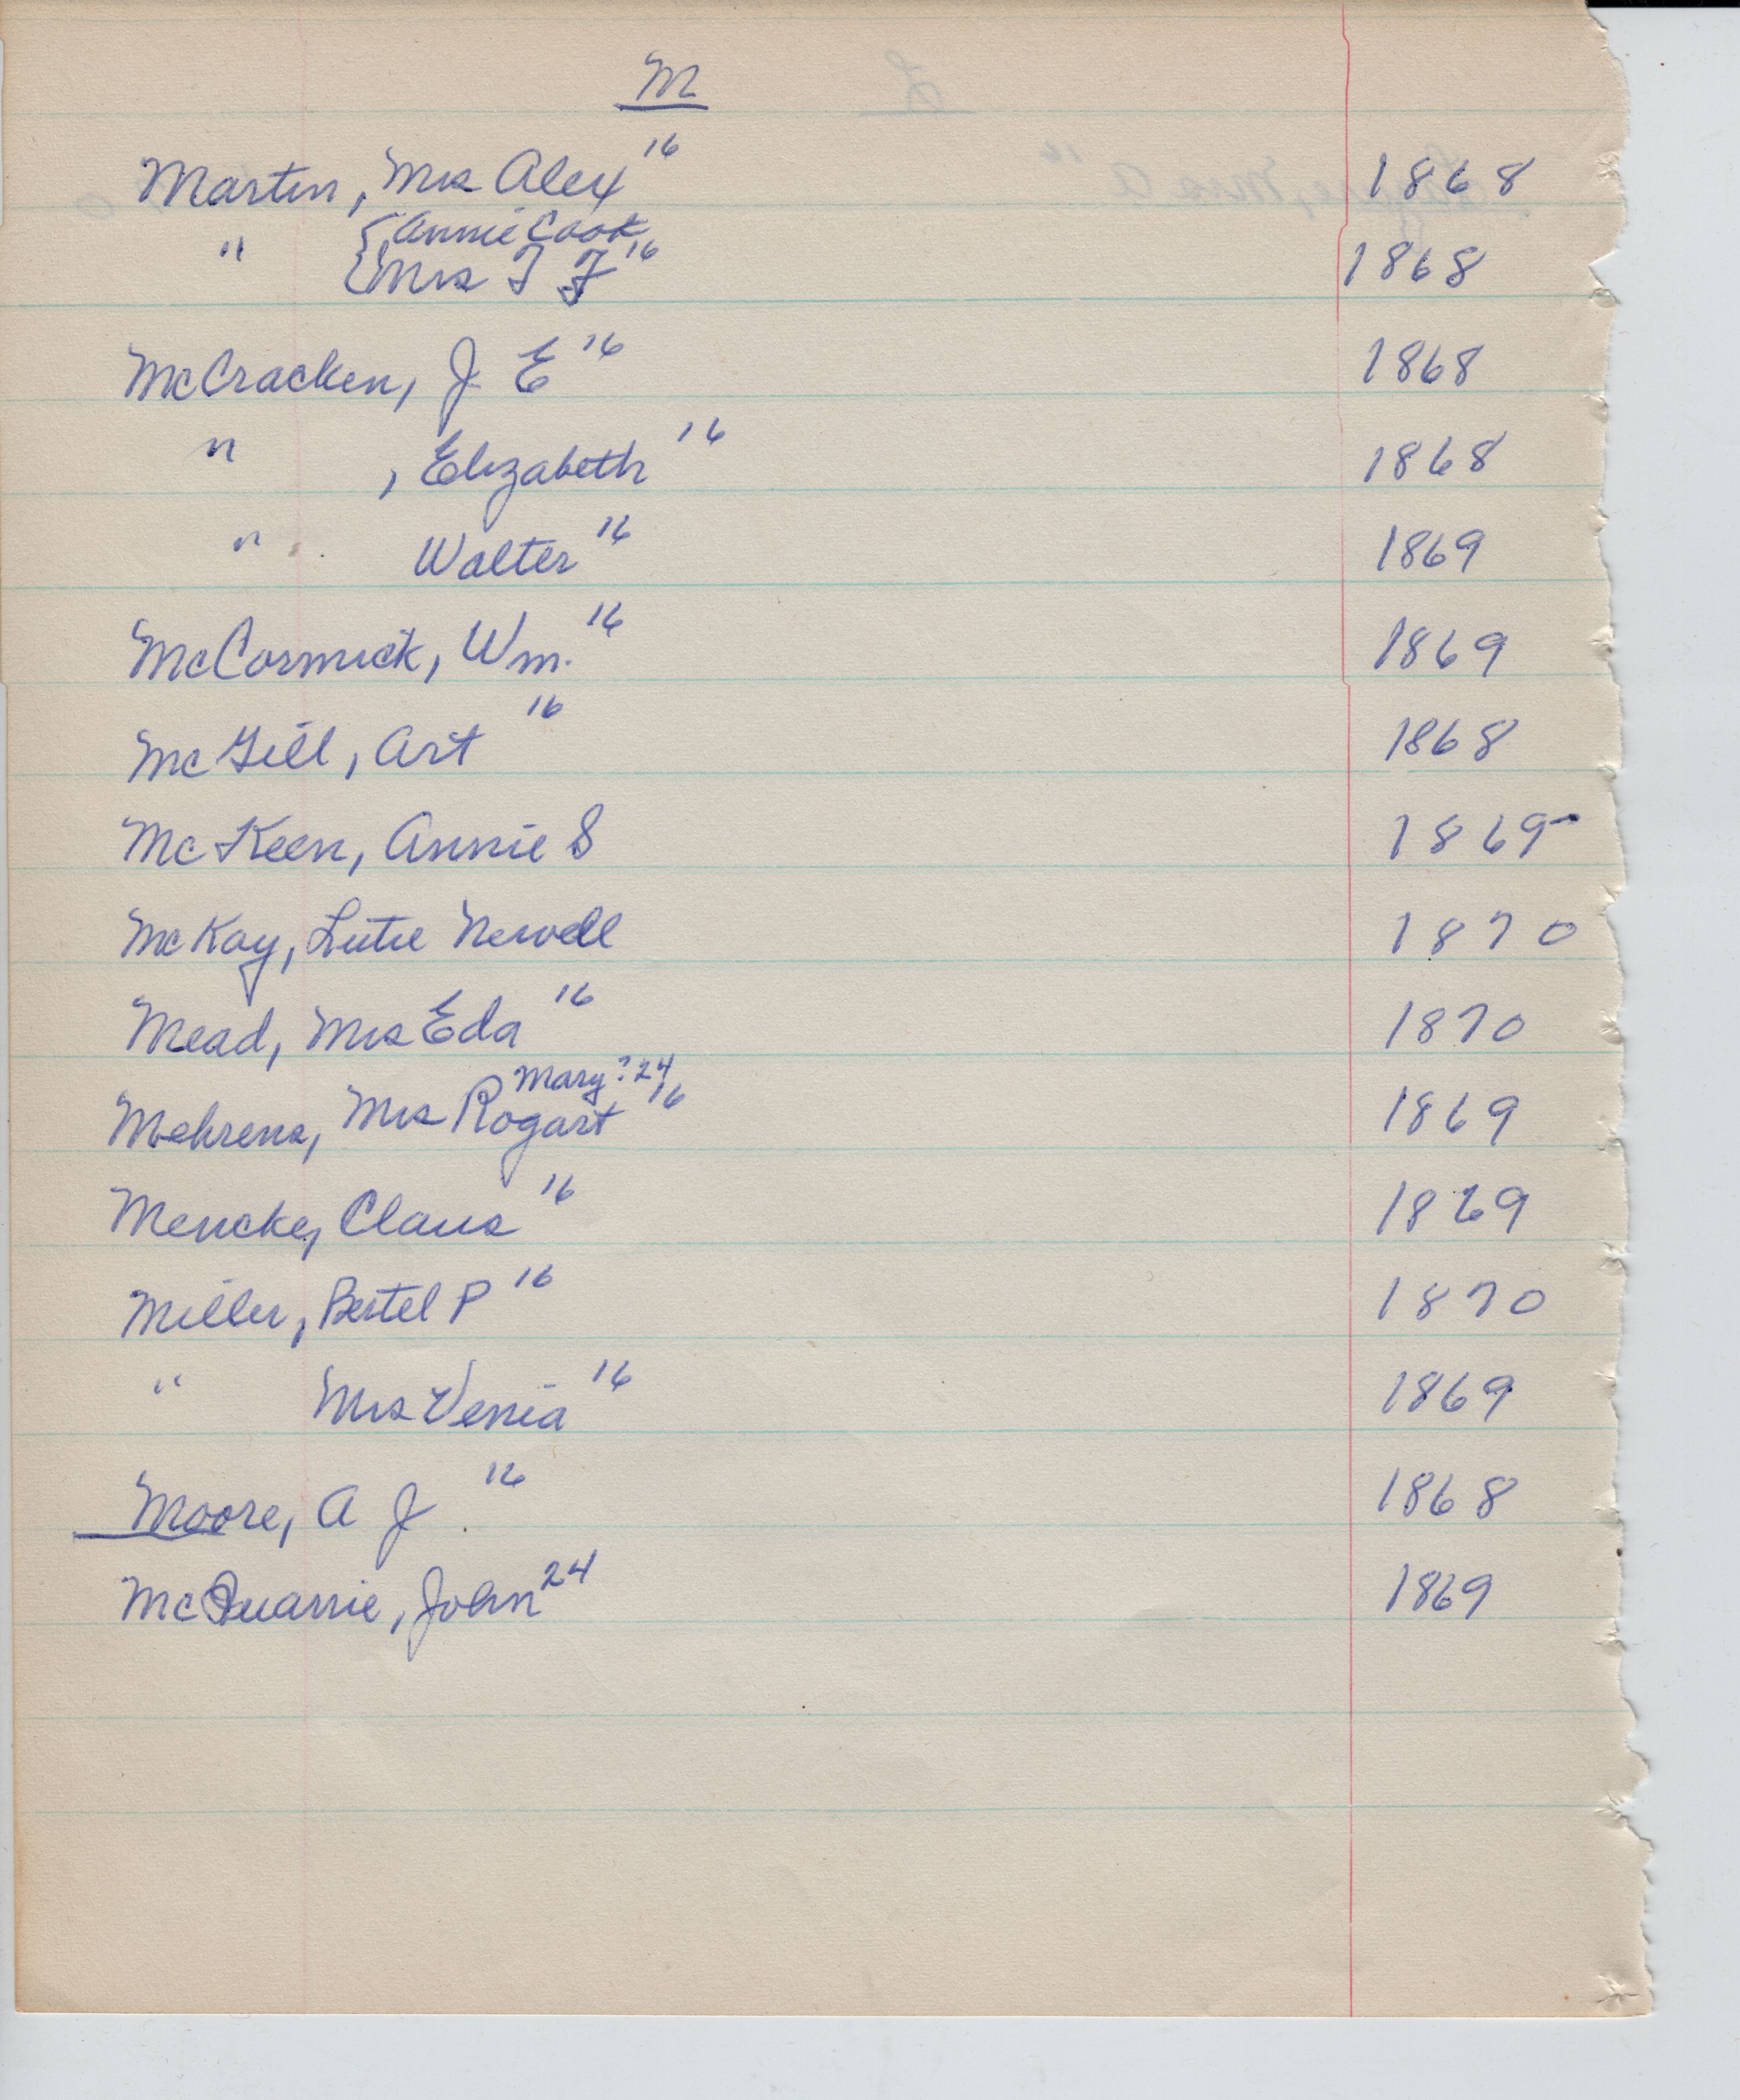 M
Martin, Mrs Alex 16 1868
" { Annie Cook
Mrs T F 16 1868
McCracken, J E 16 1868
" , Elizabeth 16 1868
" Walter 16 1869
McCormick, Wm. 16 1869
McGill, Art 16 1868
McKeen, Annie S 1869
McKay, Lutie Newell 1870
Mead, Mrs Eda 16 1870
Mary? 24
Mehrens, Mrs Rogart 16 1869
Mencke, Claus 16 1869
Miller, Bertel P 16 1870
" Mrs Venia 16 1869
Moore, A J 16 1868
McQuarrie, John 24 1869